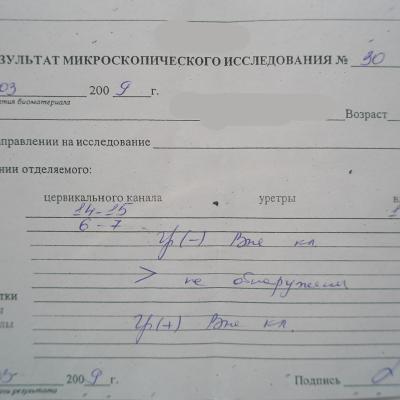 ЗУЛЬТАТ МИКРОСКОПИЧЕСКОГО ИССЛЕДОВАНИЯ № 30
03 2009 г.
тия биоматериала
Возраст
аправлении на исследование
нии отделяемого:
цервикального канала уретры в
14-15 1
6-7
Гр(-) Вне кл
> не обнаружены
тки
Гр(+) Вне кл.
ы
03 2009 г. Подпись
результата